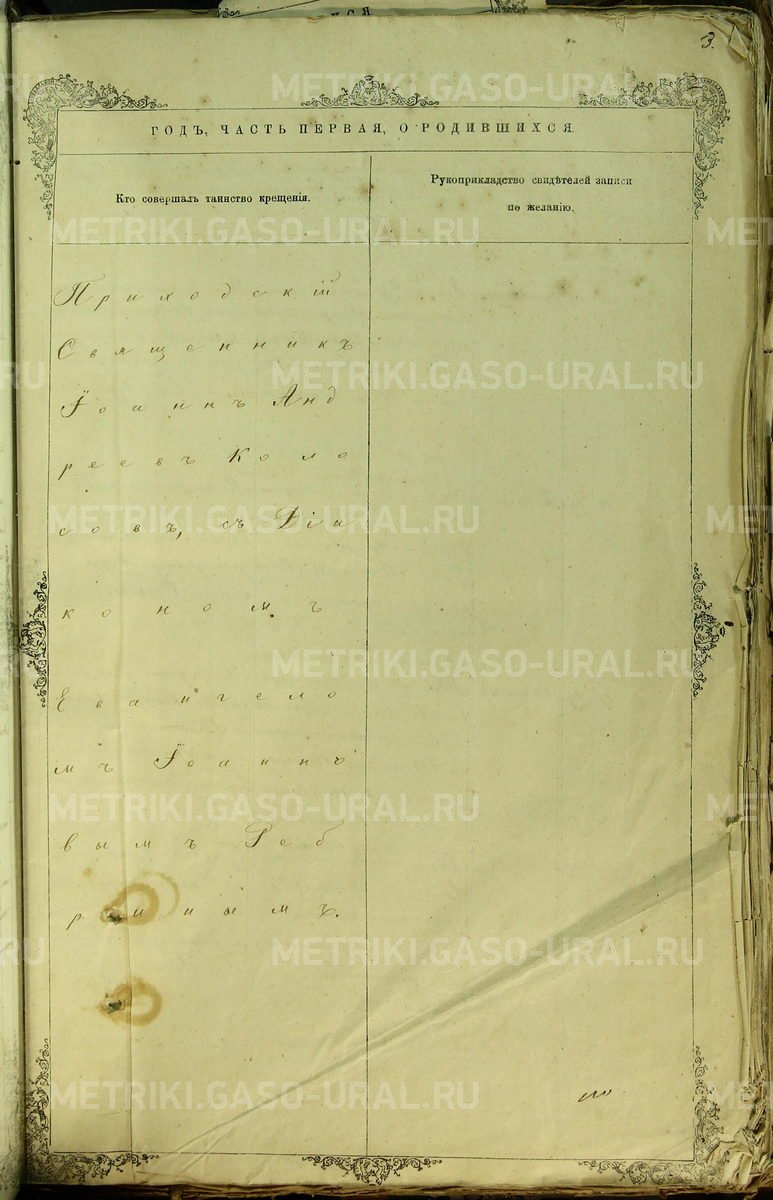 3.
ГОДЪ, ЧАСТЬ ПЕРВАЯ, О РОДИВШИХСЯ
Кто совершалъ таинство крещенія.
Рукоприкладство свидѣтелей записи
по желанію.
Приходскій
Священникъ
Іоаннъ Анд
реевъ Коло
совъ, съ Діа
кономъ
Евангело
мъ Іоанно
вымъ Реб
ринымъ.
METRIKI.GASO-URAL.RU